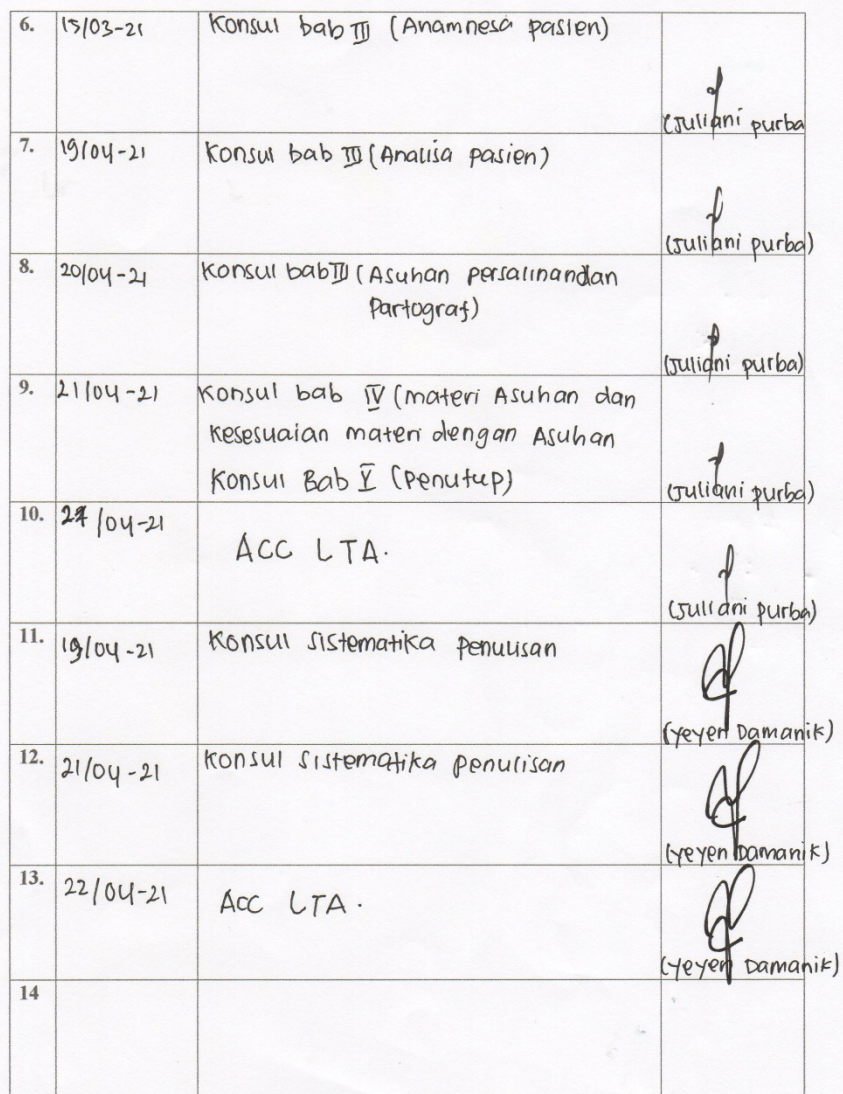 6. 15/03-21 Konsul bab III (Anamnesa pasien)
(Juliani purba
7. 19/04-21 Konsul bab III (Analisa pasien)
(Juliani purba)
8. 20/04-21 Konsul bab III (Asuhan persalinan dan
Partograf)
(Juliani purba)
9. 21/04-21 Konsul bab IV (materi Asuhan dan
Kesesuaian materi dengan Asuhan
Konsul Bab V (Penutup)
(Juliani purba)
10. /04-21
ACC LTA.
(Juliani purba)
11. 19/04-21 Konsul sistematika penulisan
(yeyen Damanik)
12. 21/04-21 Konsul sistematika penulisan
(yeyen Damanik)
13. 22/04-21 Acc LTA.
(yeyen Damanik)
14